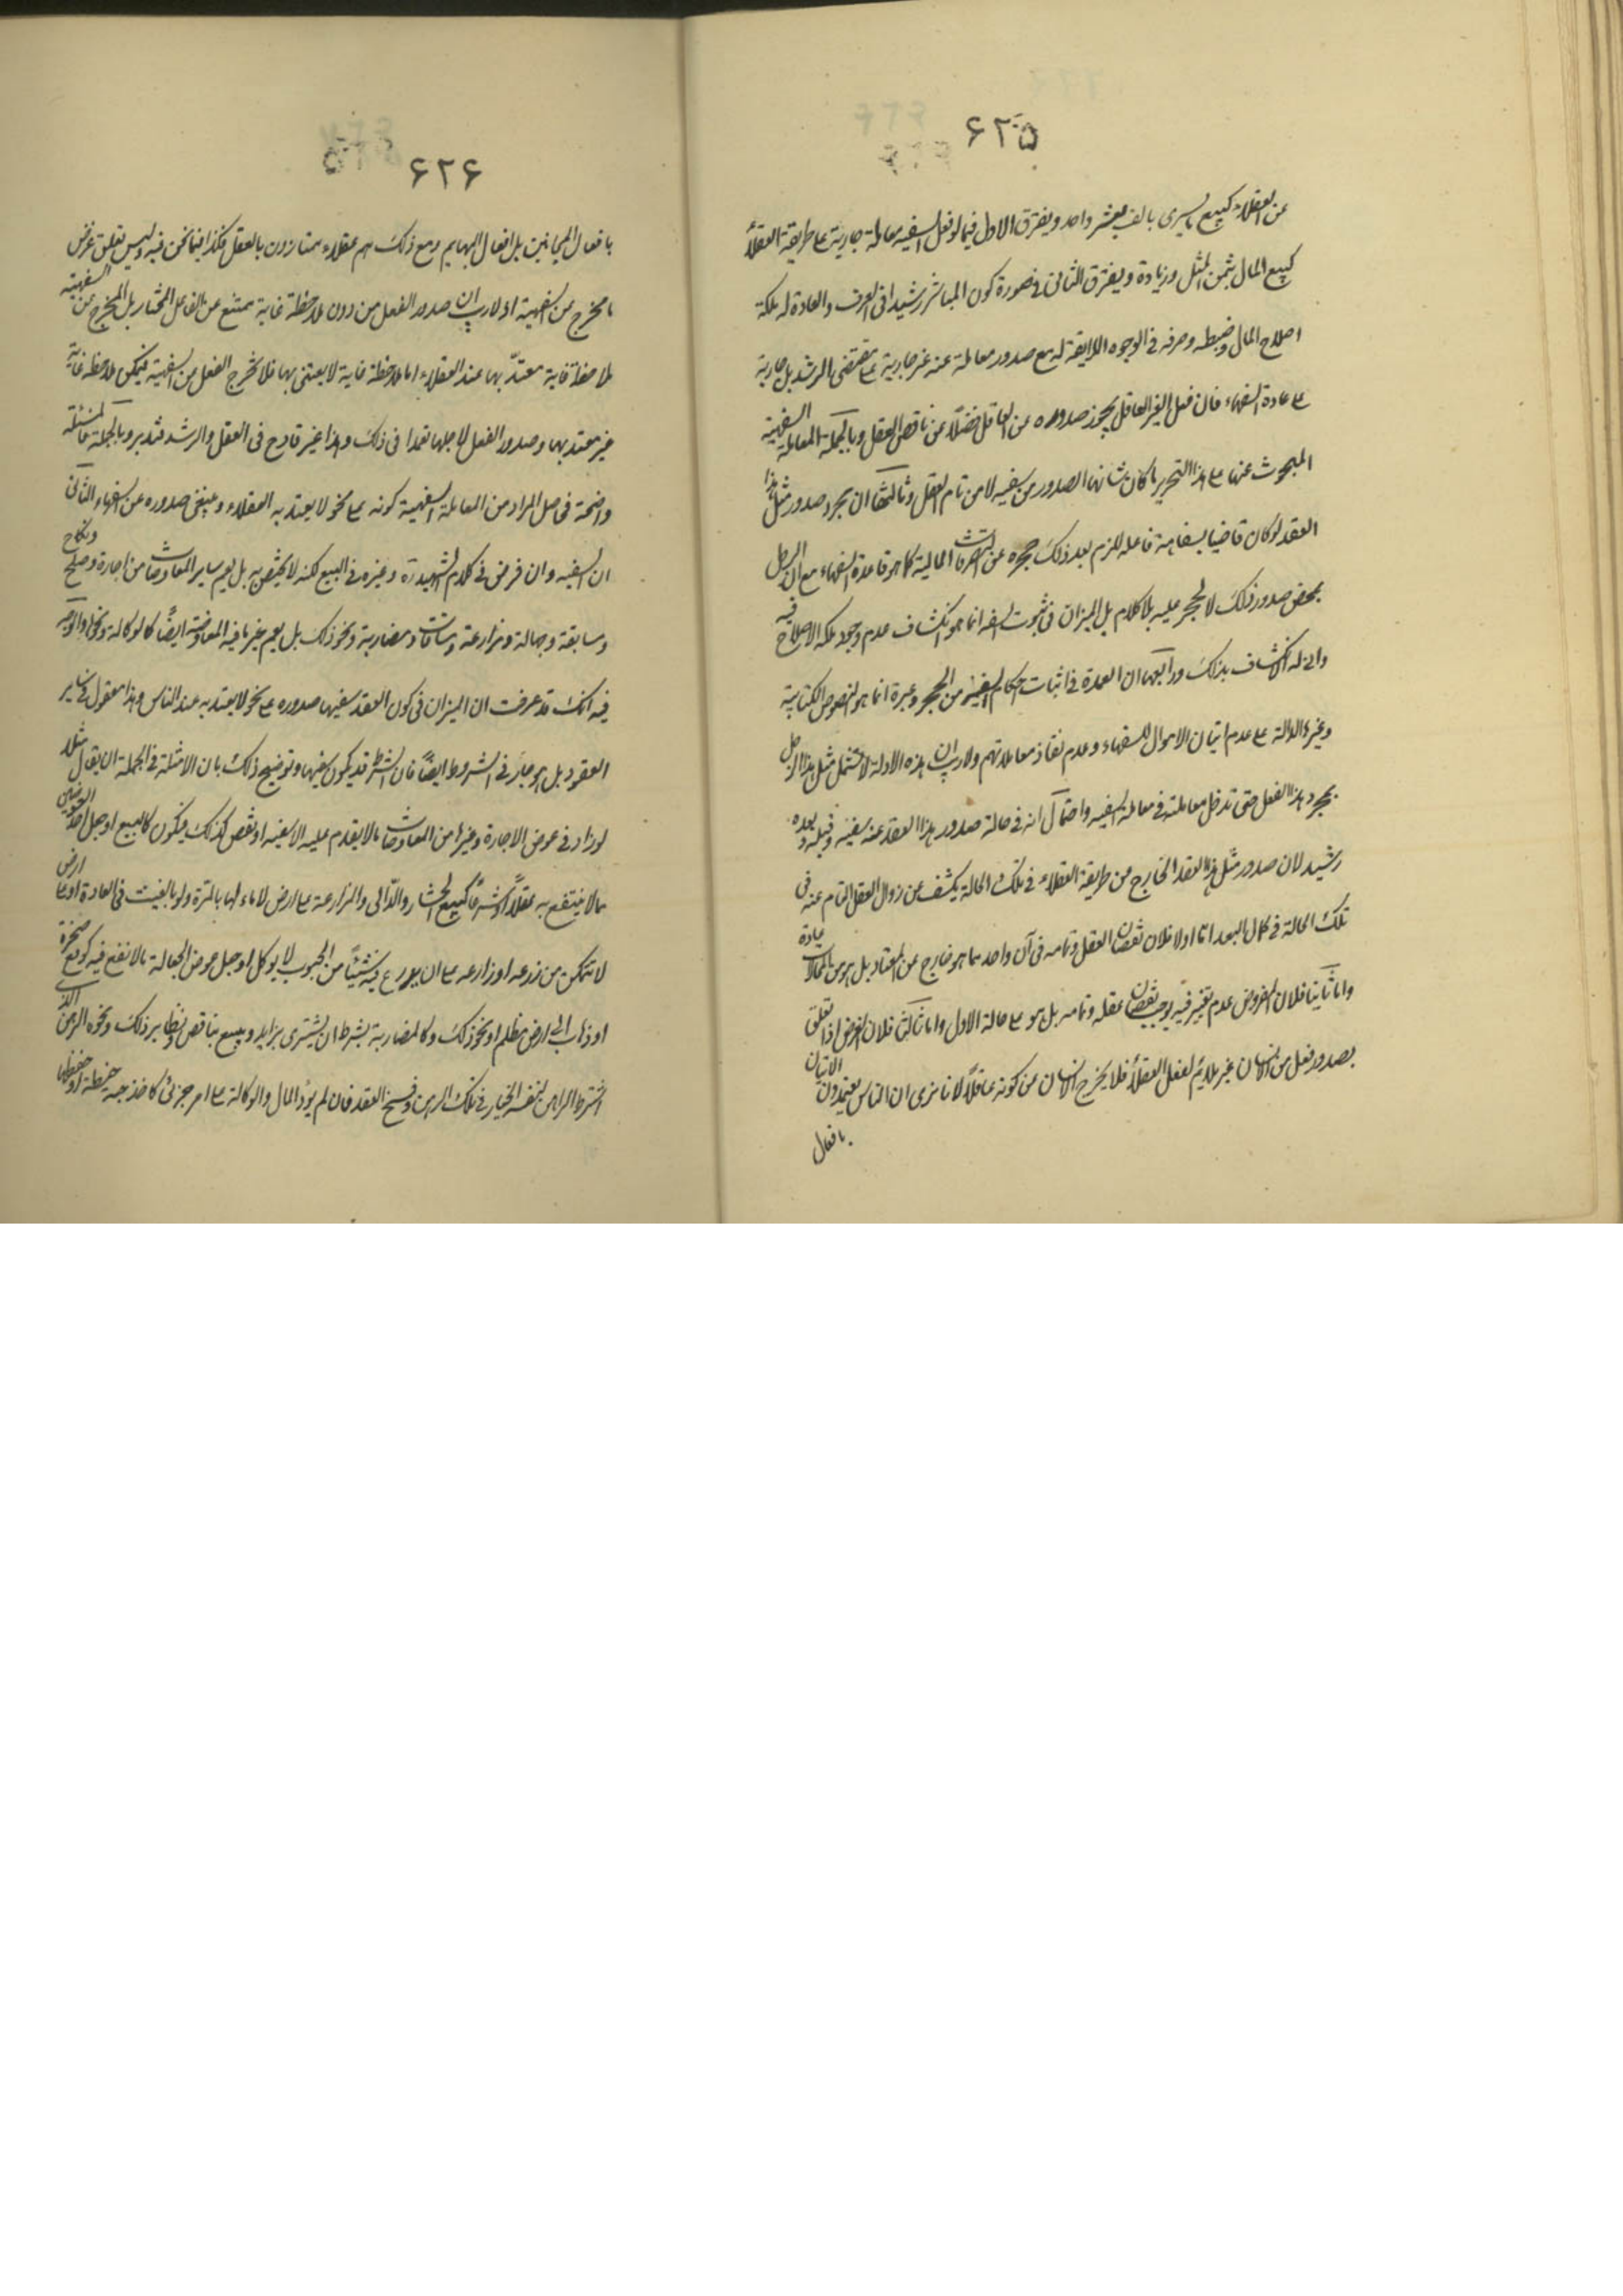 ۶۲۵
عن العقلاء كبيع ما يسرى بالف بعشر واحد ويفترق الاول فيما لو فعل السفيه معاملة جارية على طريقة العقلاء
كبيع المال بثمن المثل وزيادة ويفترق الثانى فى صورة كون المباشر رشيدا فى العرف والعادة له ملكة
اصلاح المال وضبطه وصرفه فى الوجوه اللايقة له مع صدور معاملة عنه غير جارية على مقتضى الرشد بل جارية
على عادة السفهاء فان فعل الغير العاقل يجوز صدوره عن العاقل فضلًا عن ناقص العقل وبالجملة المعاملة السفهية
المبحوث عنها على هذا التحرير ما كان شانها الصدور من سفيه لا من تام العقل وثالثها ان مجرد صدور مثل هذا
العقد لو كان قاضيا بسفاهة فاعله للزم بعد ذلك حجره عن التصرفات المالية كما هو قاعدة السفهاء مع ان الرجل
بمحض صدور ذلك لا يحجر عليه بلا كلام بل الميزان فى ثبوت السفه انما هو انكشاف عدم وجود ملكة الاصلاح فيه
وانى له الانكشاف بذلك ورابعها ان العمدة فى اثبات احكام السفيه من الحجر وغيره انما هو النصوص الكتابية
وغيرها الدالة على عدم اتيان الاموال للسفهاء وعدم نفاذ معاملاتهم ولا ريب ان هذه الادلة لا تشمل مثل هذا الرجل
بمجرد هذا الفعل حتى تدخل معاملته فى معاملة السفيه واحتمال انه فى حالة صدور هذا العقد عنه سفيه وقبله وبعده
رشيد لان صدور مثل هذا العقد الخارج من طريقة العقلاء فى تلك الحالة يكشف عن زوال العقل التام عنه فى
تلك الحالة فى كمال البعد اما اولا فلان نقصان العقل وتمامه فى آن واحد مما هو خارج عن المعتاد بل هو من المحالات عادة
واما ثانيا فلان المفروض عدم تغير فيه يوجب نقصان عقله وتمامه بل هو على حالة الاول واما ثالثا فلان الغرض اذا تعلق
بصدور فعل من انسان غير ملايم لفعل العقلاء فلا يخرج الانسان من كونه عاقلًا لانا نرى ان الناس يعتمدون الاتيان
بافعال
۶۲۶
بافعال المجانين بل افعال البهايم ومع ذلك هم عقلاء ممتازون بالعقل فكذا فيما نحن فيه وليس تعلق غرض
ما مخرج من السفهية اذ لا ريب ان صدور الفعل من دون ملاحظة غاية ممتنع عن الفاعل المختار بل المخرج من السفهية
ملاحظة غاية معتدّ بها عند العقلاء اما ملاحظة غاية لا يعتنى بها فلا تخرج الفعل من السفهية فيمكن ملاحظة غاية
غير معتد بها وصدور الفعل لاجلها تعمدا فى ذلك وهذا غير قادح فى العقل والرشد فتدبر وبالجملة فالمسئلة
واضحة فحاصل المراد من المعاملة السفهية كونه على نحو لا يعتد به العقلاء وينبغى صدوره عن السفهاء الثانى
ان السفيه وان فرض فى كلام الشهيد ره وغيره فى البيع لكنه لا يختص به بل يعم ساير المعاوضات من اجارة وصلح ونكاح
وسابقة وجعالة ومزارعة ومساقات ومضاربة ونحو ذلك بل يعم غير ما فيه المعاوضة ايضًا كالوكالة ونحوها والوجه
فيه انك قد عرفت ان الميزان فى كون العقد سفهيا صدوره على نحو لا يعتد به عند الناس وهذا معقول فى ساير
العقود بل هو جار فى الشروط ايضًا فان الشرط قد يكون سفهيا وتوضيح ذلك بان الامثلة فى الجملة ان يقال مثلا
لو زاد فى عوض الاجارة وغيرها من المعاوضات ما لا يقدم عليه الا سفيه او نقص كذلك فيكون كالبيع او جعل احد العوضين
مالا ينتفع به عقلًا او شرعًا كبيع الحشار والدّالى والمزارعة على ارض لا ماء لها بالمرة ولو بالغيث فى العادة او على ارض
لا يتمكن من زرعه او زارعه على ان يزرع فيه شيئًا من الحبوب لا يوكل او جعل عوض الجعالة ما لا نفع فيه كرفع صخرة
او ذهاب الى ارض مظلم او نحو ذلك وكالمضاربة بشرط ان يشترى بزايد ويبيع بناقص ونظاير ذلك ونحوه الرهن الذى
اشترط الراهن لنفسه الخيار فى تلك الرهن وفسخ العقد فان لم يؤد المال والوكالة على امر جزئى كاخذ حبه حنطة او حفظها